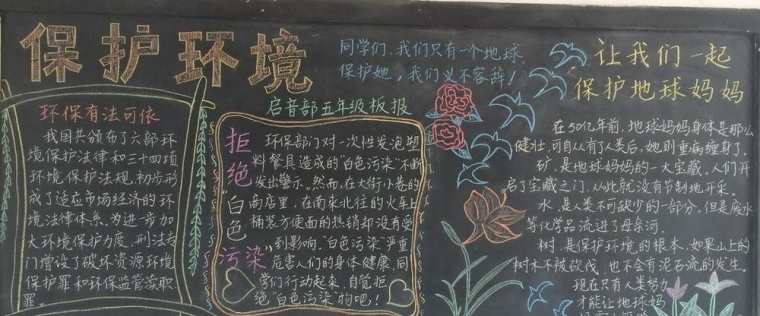 保护环境
同学们,我们只有一个地球,
保护她,我们义不容辞!
启音部五年级板报
环保有法可依
我国共颁布了六部环
境保护法律和三十四项
环境保护法规,初步形
成了适应市场经济的环
境法律体系。为进步加
大环境保护力度,刑法专
门增设了破坏资源环境
保护罪和环保监管渎职
罪。
拒绝白色污染
环保部门对一次性发泡塑
料餐具造成的"白色污染"不断
发出警示。然而,在大街小巷的
商店里,在南来北往的火车上
桶装方便面的热销却没有受
到影响。"白色污染"严重
危害人们的身体健康,同
学们行动起来,自觉拒
绝"白色污染"物吧!
让我们一起
保护地球妈妈
在50亿年前,地球妈妈身体是那么
健壮,可自从有了人类后,她则重病缠身了。
矿,是地球妈妈的一大宝藏。人们开
启了宝藏之门,从此就没有节制地开采。
水,是人类不可缺少的一部分。但是废水
等化学品流进了母亲河。
树,是保护环境的根本,如果山上的
树木不被砍伐,也不会有泥石流的发生。
现在只有人类努力
才能让地球妈